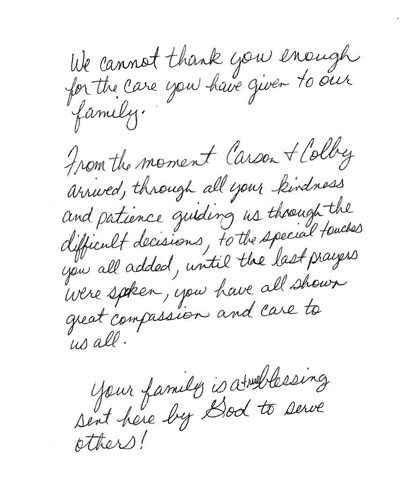 We cannot thank you enough
for the care you have given to our
family.
From the moment Carson & Colby
arrived, through all your kindness
and patience guiding us through the
difficult decisions, to the special touches
you all added, until the last prayers
were spoken, you have all shown
great compassion and care to
us all.
Your family is a true blessing
sent here by God to serve
others!